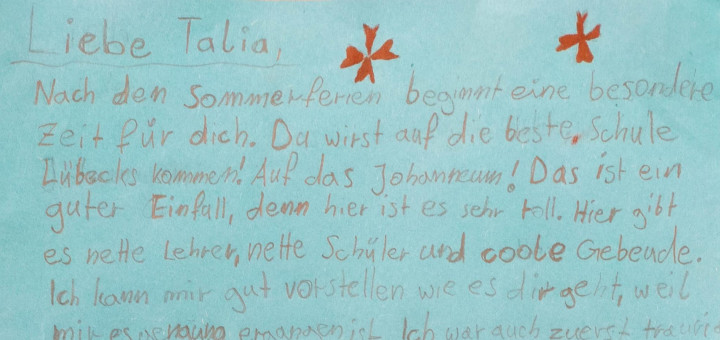 Liebe Talia,
Nach den Sommerferien beginnt eine besondere
Zeit für dich. Du wirst auf die beste Schule
Lübecks kommen! Auf das Johanneum! Das ist ein
guter Einfall, denn hier ist es sehr toll. Hier gibt
es nette Lehrer, nette Schüler und coole Gebeude.
Ich kann mir gut vorstellen wie es dir geht, weil
mir es genauso ergangen ist. Ich war auch zuerst traurig